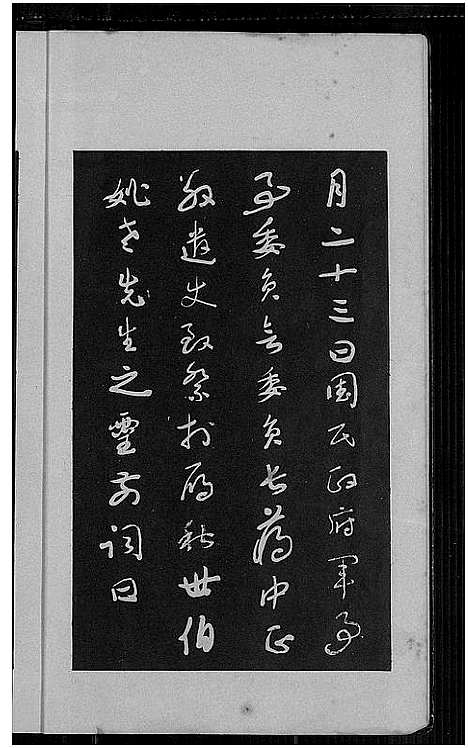 月二十三日国民政府軍事
事委員會委員長蔣中正
敬遣史致祭於世伯
姚老先生之靈前詞曰